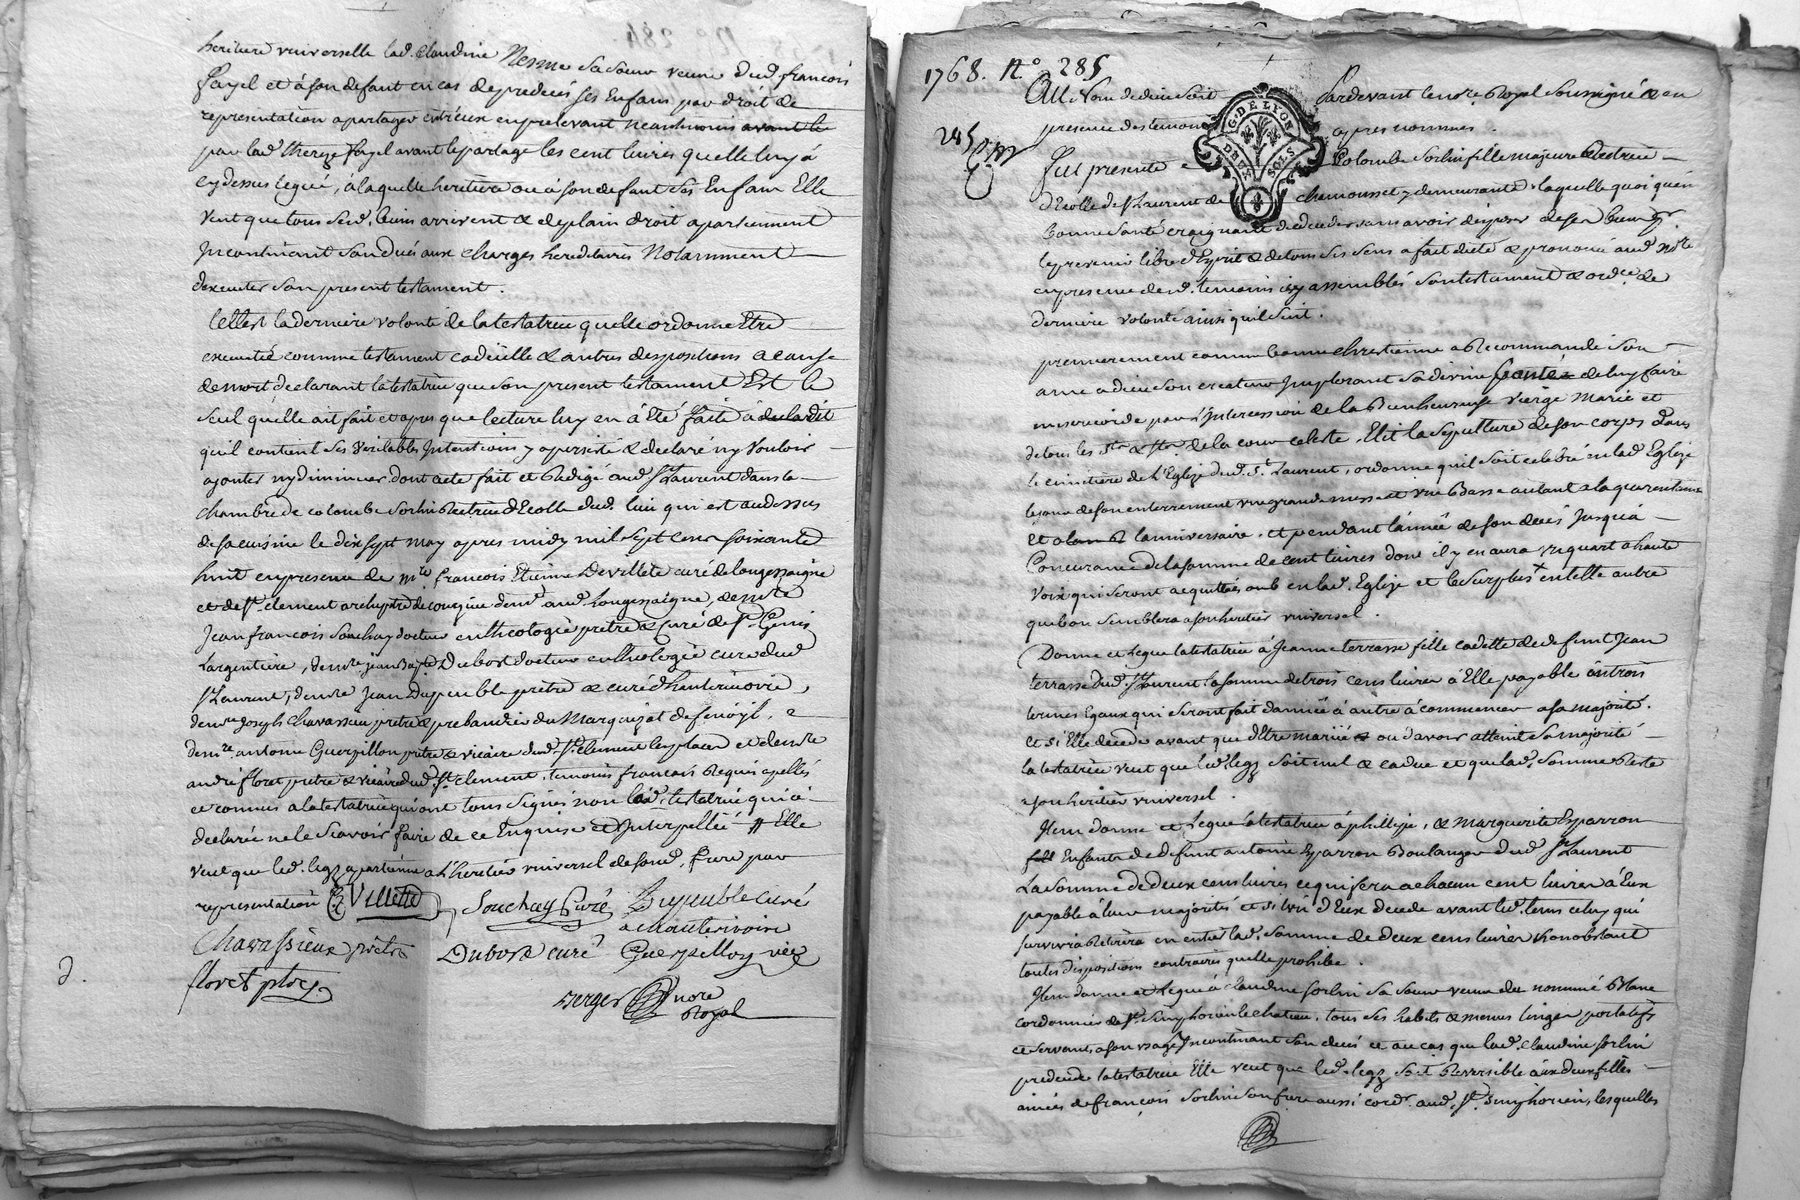 heritiere universelle lad. Claudine Nesme sa soeur veuve dud. françois
fayel et a son defaut en cas de predeces ses Enfans par droit de
representation a partager entr'eux en prelevant neantmoins avant le
par lad. therese fayel avant le partage les cent livres quelle luy a
cy dessus legué, a laquelle heritiere ou a son defaut ses Enfans Elle
veut que tous sesd. biens arrivent & de plain droit apartiennent
Incontinant son decès aux charges hereditaires Notamment
dexecuter son present testament.
telle est la derniere volonté de la testatrice quelle ordonne Etre
executée comme testament codicille & autres dispositions a cause
de mort declarant la testatrice que son present testament Est le
seul quelle ait fait et apres que lecture luy en a eté faite a declaré
quil contient ses veritables Intentions y a persisté & declaré ny vouloir
ajouter ny diminuer dont acte fait et Redigé aud. St Laurent dans la
chambre de colombe sorlin Rectrice d'Ecolle dud. lieu qui est au dessus
de sa cuisine le dix sept may apres midy mil sept cens soixante
huit en presence de mre françois Etienne Devillete curé de longessaigne
et de St. clement archiprêtre de courzieu demt. aud. longessaigne, de mre
Jean françois Souchay docteur en theologie prêtre & curé de St. Genis
Largentiere, de mre jean Bapte Dubost docteur en theologie curé dud
St Laurent, de mre Jean Dupeuble prêtre & curé d'hauterivoire,
de mre Joseph Chavassieu prêtre & prebandier du Marquizat de
de mre antoine Guerpillon prêtre & vicaire dud. St. clement les places et de mre
andré floret prêtre & vicaire dud. St clement, temoins françois Requis apellés
et connus a la testatrice qui ont tous signés non lad. testatrice qui a
declarée ne le scavoir faire de ce Enquise et Interpellée # Elle
veut que led. legs apartienne a l'heritier universel de sond. frere par
representation Villette
Souchay Curé Dupeuble Curé
a hauterivoire
Chavassieux prêtre Dubost curé Guerpillon vic
floret ptre
verger nore
Royal
1768. No. 285
Au Nom de dieu soit Pardevant le nore. Royal soussigné & en
presence des temoins cy apres nommés.
245
fut presente Colombe sorlin fille majeure Rectrice
d'Ecolle de St Laurent de chamousset y demeurante, laquelle quoi qu'en
bonne santé craignante de deceder sans avoir disposer de ses biens
le presenir libre d'Esprit & de tous ses sens a fait dicté & prononcé aud Nore
en presence desd. temoins icy assemblés son testament & ordce. de
derniere volonté ainsi quil suit.
premierement comme bonne chrestienne a Recommandé son
ame a dieu son createur Implorant sa divine bonté de luy faire
misericorde par l'Intercession de la Bienheureuse vierge Marie et
de tous les Sts & Stes. de la cour celeste, Elit la sepulture de son corps dans
le cimitière de l'Eglize dud. St Laurent, ordonne quil soit celebré en lad Eglize
le jour de son enterrement une grande messe et une Basse autant a la quarentaine
et a lanniversaire. et pendant l'année de son deces jusqu'a
Concurance de la somme de cent livres dont il y en aura un quart a haute
voix qui seront acquittées en lad. Eglize et le surplus en telle autre
que bon semblera a son heritier universel.
Donne et Legue la testatrice à Jeanne terrasse fille cadette de defunt Jean
terrasse dud. St Laurent la somme de trois cens livres à Elle payable en trois
termes Egaux qui seront fait d'année à autre à commencer a sa majorité.
et si Elle decede avant que d'Etre mariée ou d'avoir atteint sa majorité
la testatrice veut que led. legs soit nul & caduc et que lad. somme Reste
a son heritier universel.
Item donne et Legue la testatrice à phelipe, & marguerite Esparron
Enfants de defunt antoine Esparron Boulanger dud. St Laurent
La somme de deux cens livres ce qui sera a chacun cent livres à Eux
payable à leur majorité et si l'un d'Eux decede avant led. tems celuy qui
survivra Retirera en entier lad. somme de deux cens livres Nonobstant
toutes dispositions contraires quelle prohibe.
Item donne et Legue à claudine sorlin sa soeur veuve du nommé Blanc
cordonnier de St. Simphorien le chateau, tous ses habits & menus linges portatifs
et servants a son usage Incontinant son deces et au cas que lad. claudine sorlin
predecede la testatrice Elle veut que led. legs soit Reversible aux deux filles
ainées de françois sorlin son frere aussi cordr. aud. St. Simphorien, lesquelles